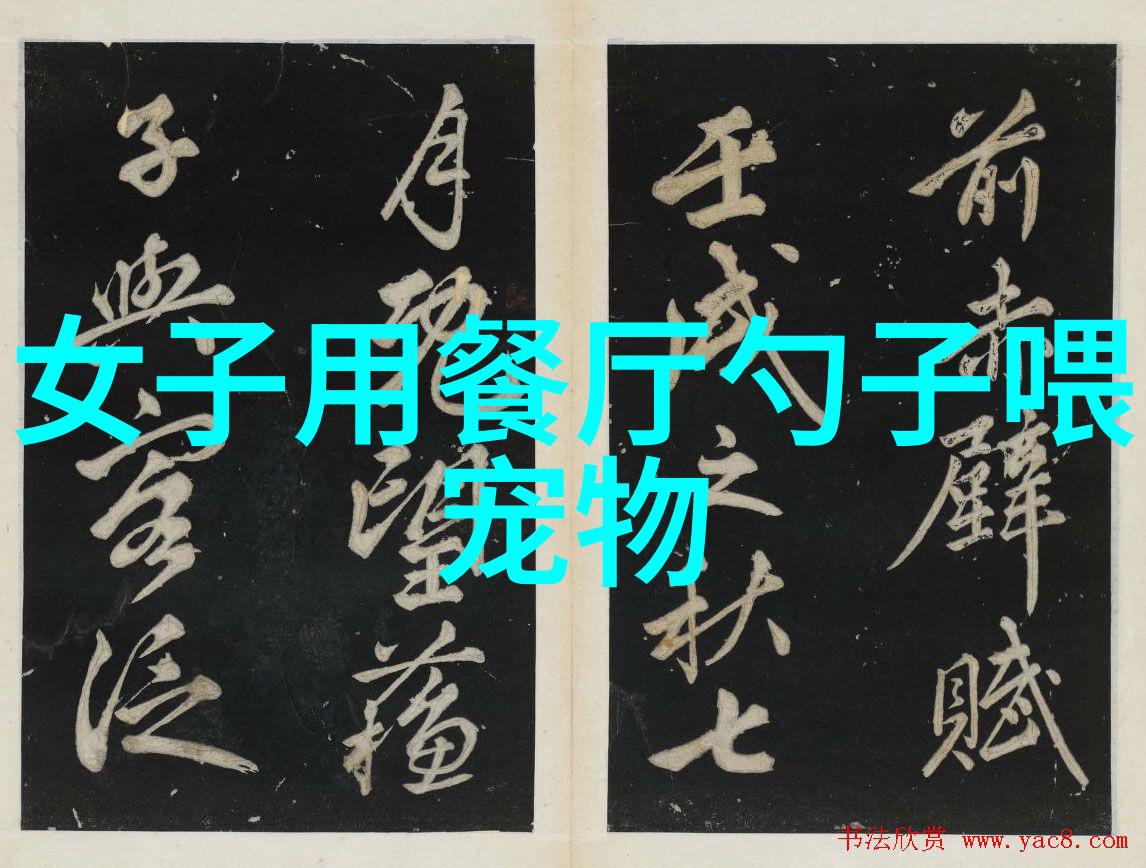 女子用餐厅勺子喂
宠物
前赤壁賦
壬戌之秋七
月既望蘓
子與客泛
书法欣赏 www.yac8.com